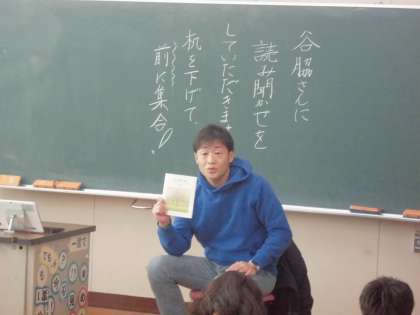 谷脇さんに
読み聞かせを
していただきます
机を下げて、
前に集合!